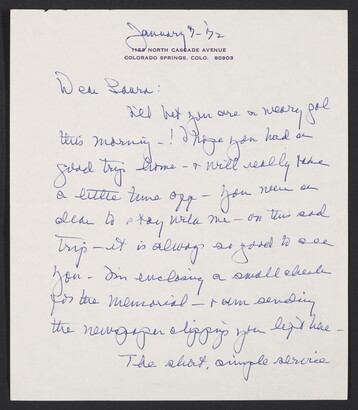 January 7-'72
1155 NORTH CASCADE AVENUE
COLORADO SPRINGS, COLO. 80903
Dear Laura:
I'll bet you are a weary gal
this morning -! I hope you had a
good trip home - & will really take
a little time off - You were a
dear to stay with me - on this sad
trip - it is always so good to see
you - I'm enclosing a small check
for the Memorial - & am sending
the newspaper clippings you left here -
The short, simple service